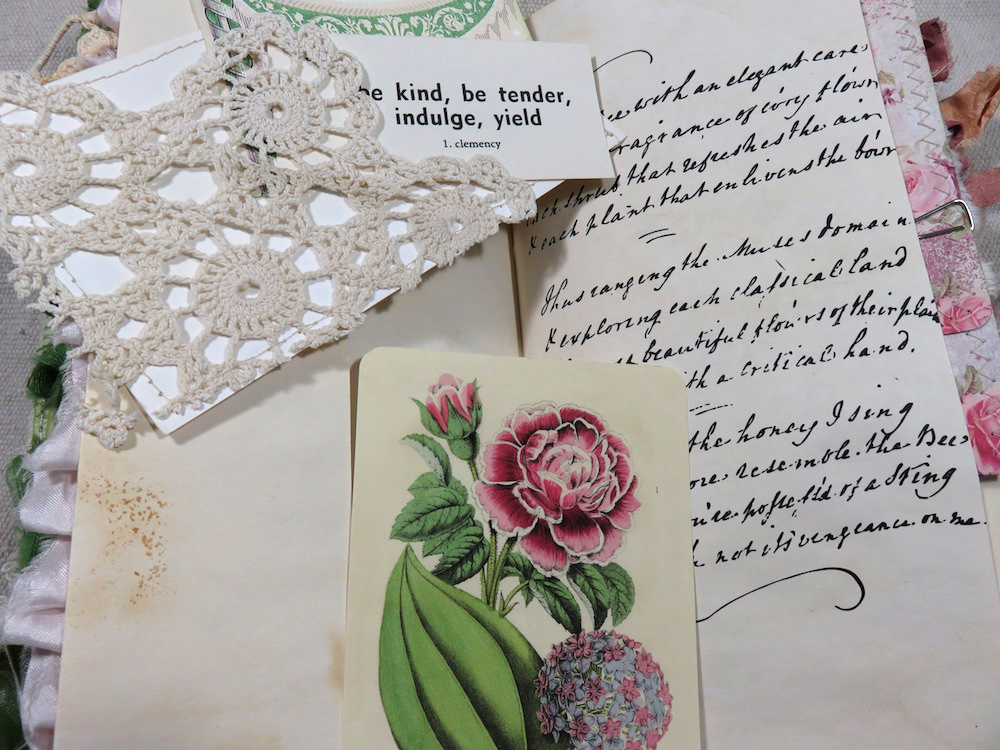 be kind, be tender,
indulge, yield
1. clemency
with an elegant care
of ev'ry flow'r
shrub that refreshes the air
& each plant that enlivens the bow'r
Thus ranging the Muses domain
& exploring each claſsical land
beautiful flow'rs of their plain
a critical hand.
the honey I sing
resemble the Bees
of a Sting
not its vengeance on me.